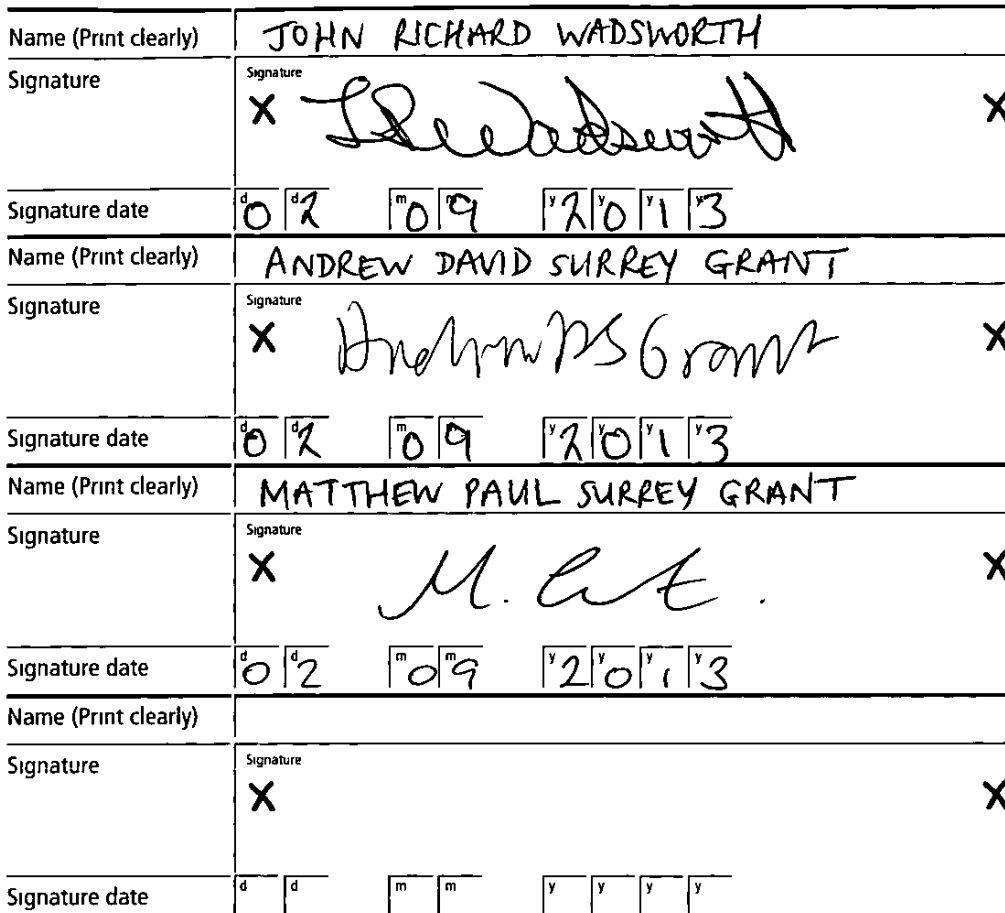 Name (Print clearly) JOHN RICHARD WADSWORTH
Signature Signature
X JR Wadsworth X
Signature date d0 d2 m0 m9 y2 y0 y1 y3
Name (Print clearly) ANDREW DAVID SURREY GRANT
Signature Signature
X Andrew DS Grant X
Signature date d0 d2 m0 m9 y2 y0 y1 y3
Name (Print clearly) MATTHEW PAUL SURREY GRANT
Signature Signature
X M. X
Signature date d0 d2 m0 m9 y2 y0 y1 y3
Name (Print clearly)
Signature Signature
X X
Signature date d d m m y y y y